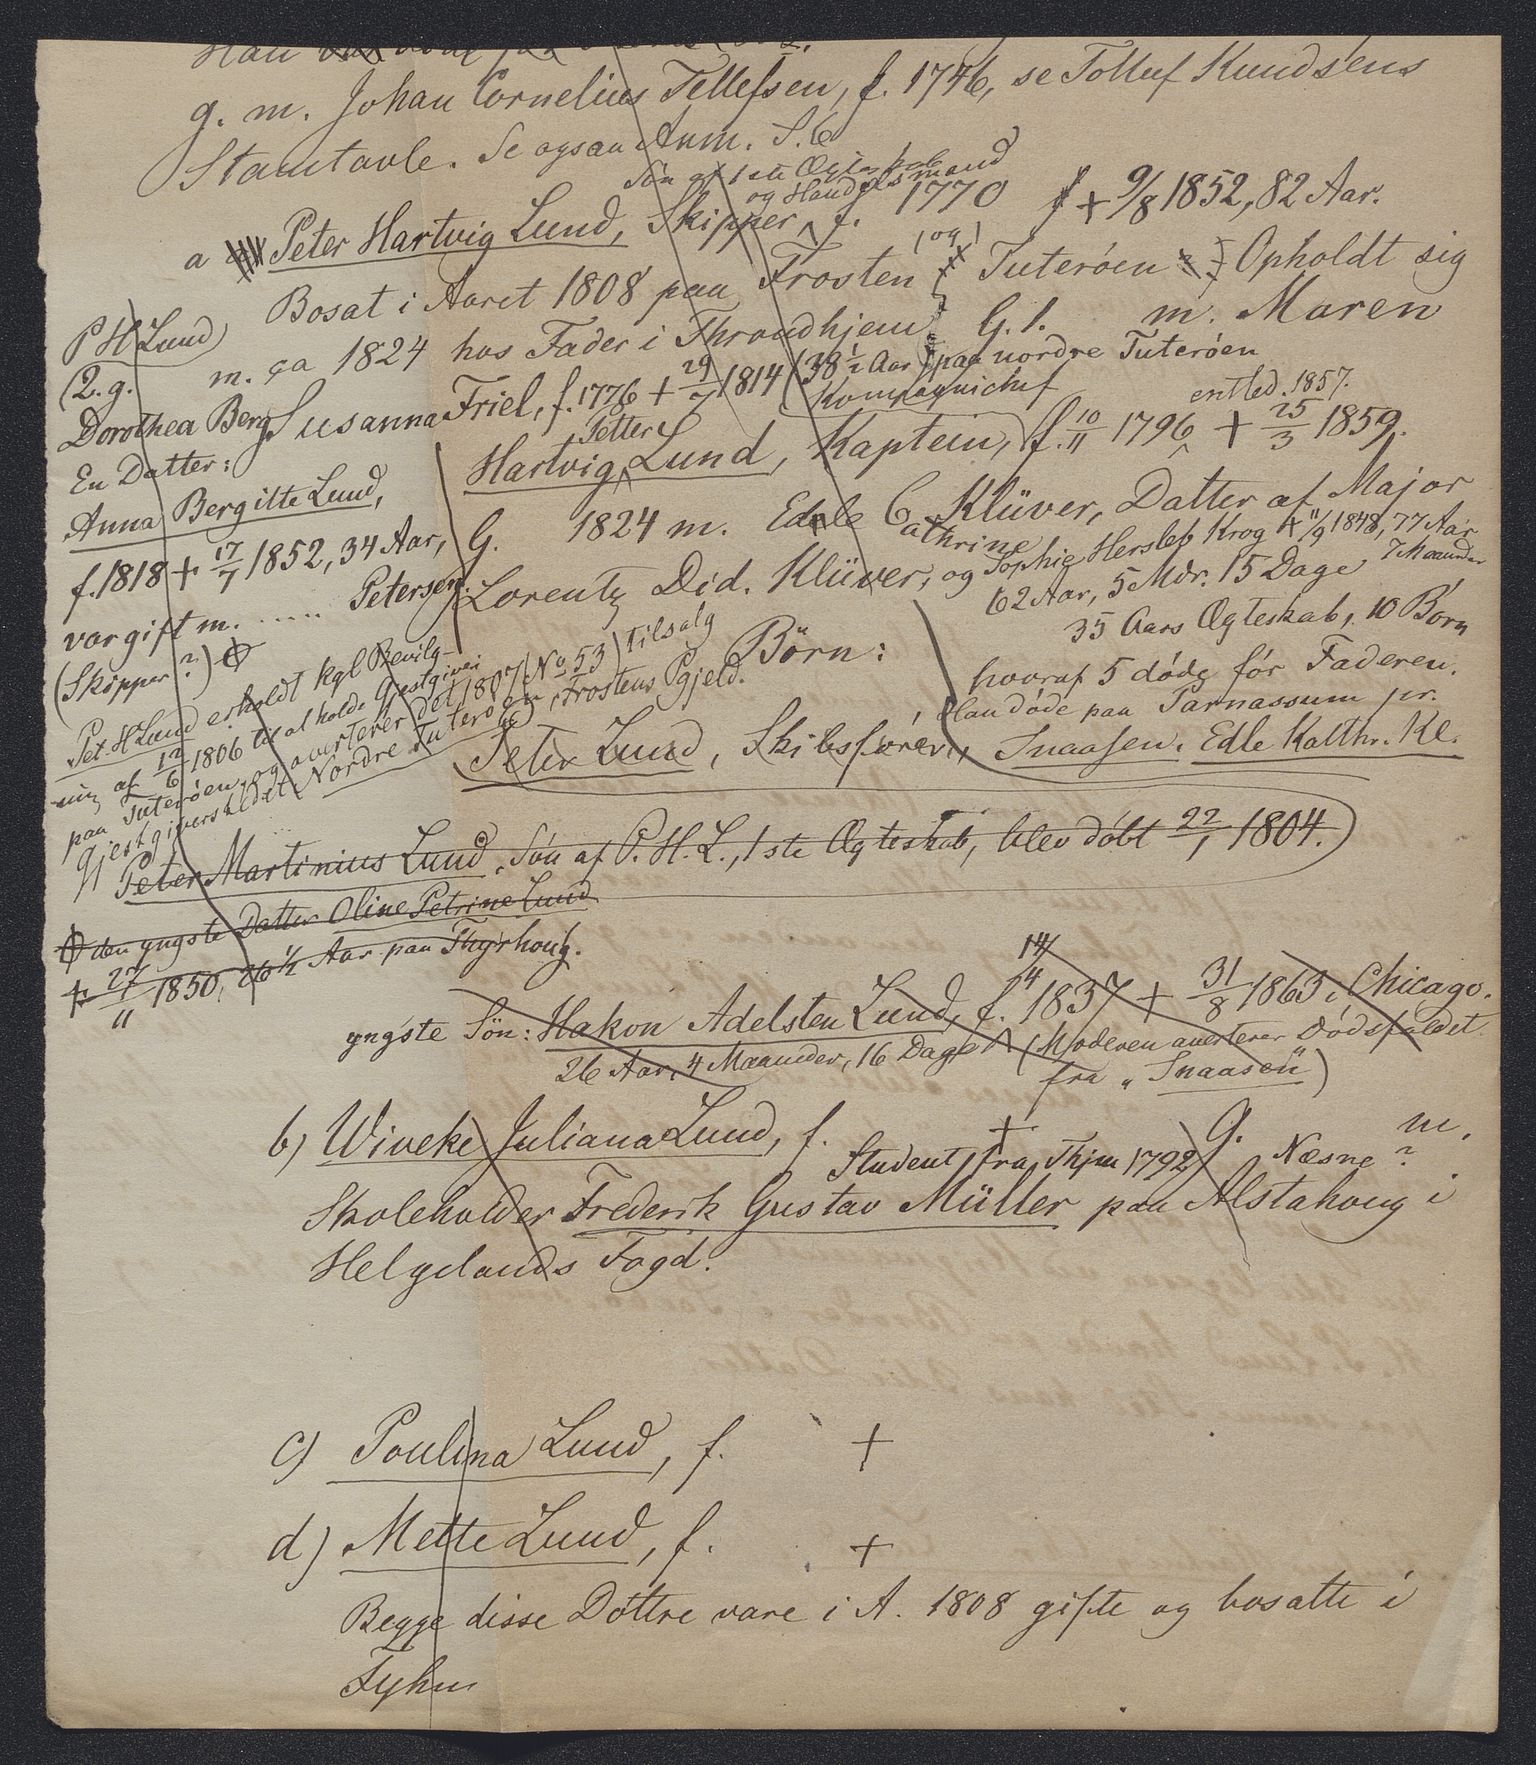 g. m. Johan Cornelius Tellefsen, f. 1746, se Tolluf Knudsens
Stamtavle. Se ogsaa Anm. S. 6
Søn af 1ste Ægteskab
og Handelsmand
a Peter Hartvig Lund, Skipper, f. 1770 + 9/8 1852, 82 Aar.
Bosat i Aaret 1808 paa Frosten (og) Tuterøen Opholdt sig
m. ca 1824 hos Fader i Throndhjem G. 1. m. Maren
Susanna Friel, f. 1776 + 29/7 1814 (38 1/2 Aar) paa nordre Tuterøen
P H Lund
(2. g.
Dorothea Berg
En Datter:
Anna Bergitte Lund,
f. 1818 + 17/7 1852, 34 Aar,
var gift m. ..... Petersen.
(Skipper?) ϕ
Kompagnichef
entled. 1857.
Hartvig Petter Lund, Kaptein, f. 10/11 1796 + 25/3 1859.
G. 1824 m. Edele Cathrine Klüver, Datter af Major
Lorentz Did. Klüver, og Sophie Hersleb Krog + 11/9 1848, 77 Aar
7 Maaneder
62 Aar, 5 Mdr. 15 Dage
35 Aars Ægteskab, 10 Børn
hvoraf 5 døde før Faderen.
Han døde paa Parnassum pr.
Snaasen. Edle Kathr. Kl.
Børn:
Peter Lund, Skibsfører,
Pet. H Lund erholdt kgl Bevilg-
ning af 12/6 1806 til at holde Gjestgiveri
paa Tuterøen, og averterer det 1807 (No 53) tilsalg
Gjestgiverstedet Nordre Tuterøen, Frostens Pgjeld.
Peter Martinius Lund, Søn af P. H. L., 1ste Ægteskab, blev døbt 22/1 1804.
ϕ den yngste Datter Oline Petrine Lund
+ 27/11 1850, 26 1/2 Aar paa Thyrhoug.
14/4
yngste Søn: Hakon Adelsten Lund, f. 1837 + 31/8 1863 i Chicago.
26 Aar, 4 Maaneder, 16 Dage (Moderen averterer Dødsfaldet
fra "Snaasen")
b) Wiveke Juliana Lund, f. + g. m.
Student fra Thjm 1792 Næsne?
Skoleholder Frederik Gustav Müller paa Alstahoug i
Helgelands Fogd.
c) Poulina Lund, f. +
d) Mette Lund, f. +
Begge disse Døttre vare i A. 1808 gifte og bosatte i
Tyhm